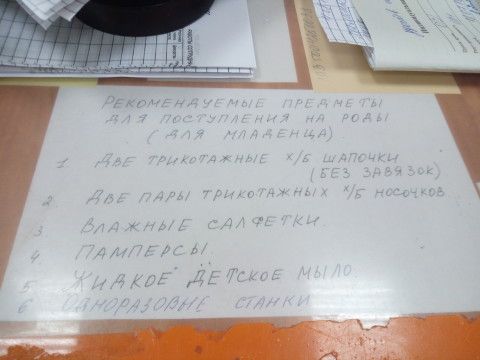 РЕКОМЕНДУЕМЫЕ ПРЕДМЕТЫ
ДЛЯ ПОСТУПЛЕНИЯ НА РОДЫ
(ДЛЯ МЛАДЕНЦА)
1 ДВЕ ТРИКОТАЖНЫЕ Х/Б ШАПОЧКИ
(БЕЗ ЗАВЯЗОК)
2 ДВЕ ПАРЫ ТРИКОТАЖНЫХ Х/Б НОСОЧКОВ
3 ВЛАЖНЫЕ САЛФЕТКИ.
4 ПАМПЕРСЫ.
5 ЖИДКОЕ ДЕТСКОЕ МЫЛО
6 ОДНОРАЗОВЫЕ СТАНКИ